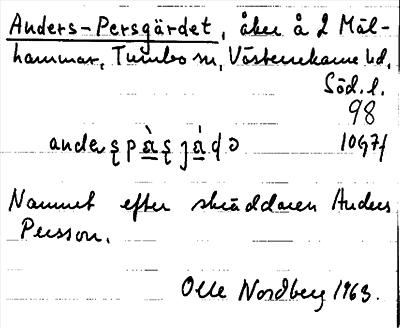 Anders-Persgärdet, åker å 2 Mäl-
hammar, Tumbo sn, Västerrekarne hd,
Söd. l.
98
10G7f
Namnet efter skräddaren Anders
Persson.
Olle Nordberg 1963.